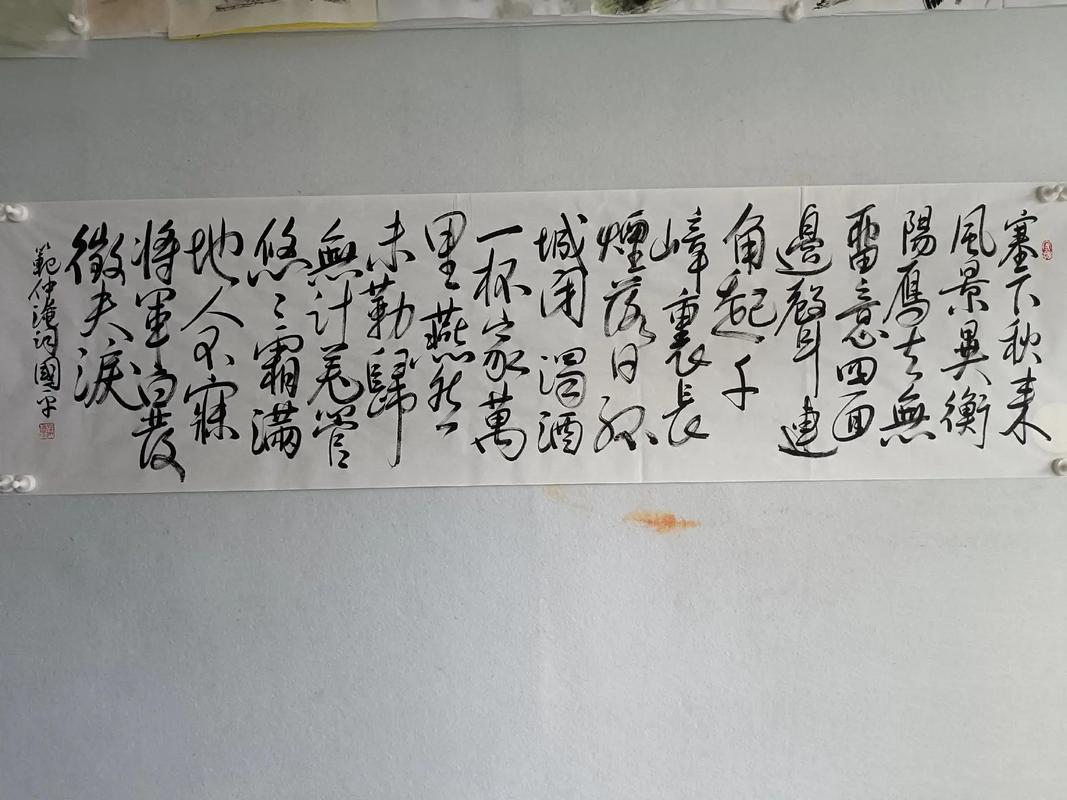 塞下秋来
風景異衡
陽雁去無
留意四面
邊聲連
角起千
嶂裏長
煙落日孤
城闭濁酒
一杯家萬
里燕然
未勒歸
無計羌管
悠〻霜满
地人不寐
將軍白發
徵夫淚
範仲淹詞國平